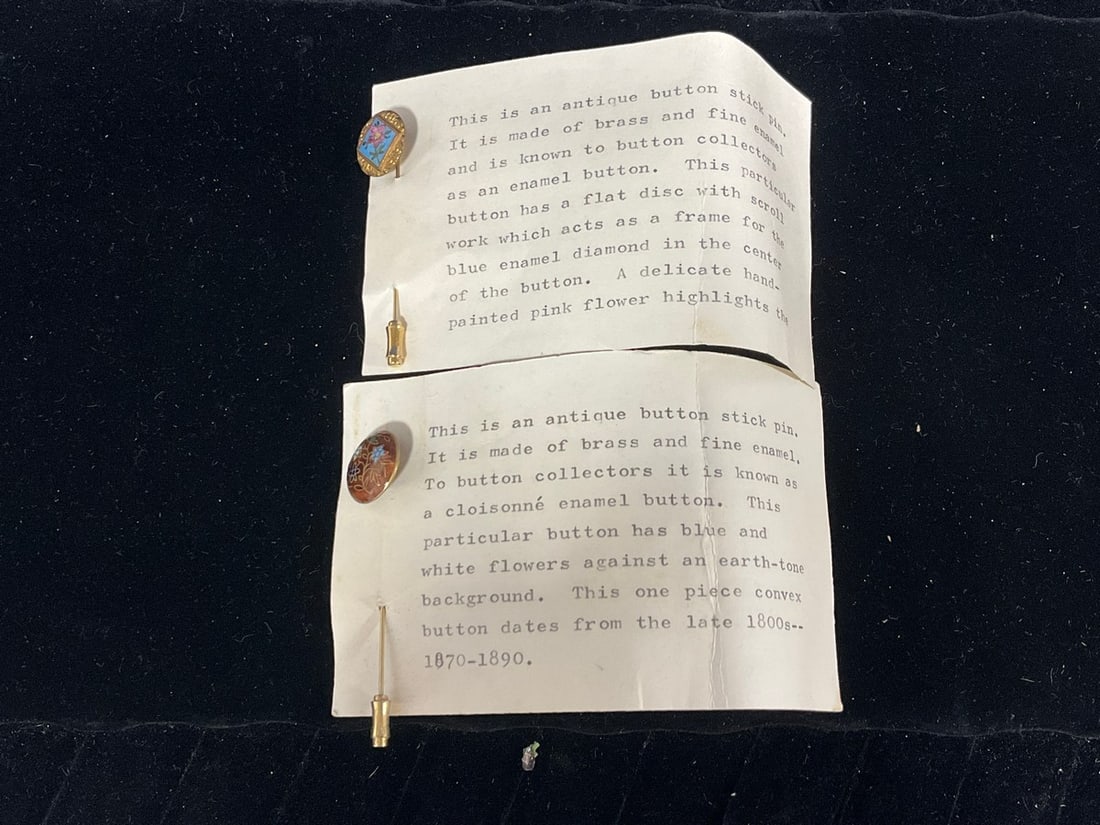 This is an antique button stick pin.
It is made of brass and fine enamel
and is known to button collectors
as an enamel button. This particular
button has a flat disc with scroll
work which acts as a frame for the
blue enamel diamond in the center
of the button. A delicate hand-
painted pink flower highlights the
This is an antique button stick pin.
It is made of brass and fine enamel.
To button collectors it is known as
a cloisonné enamel button. This
particular button has blue and
white flowers against an earth-tone
background. This one piece convex
button dates from the late 1800s--
1870-1890.